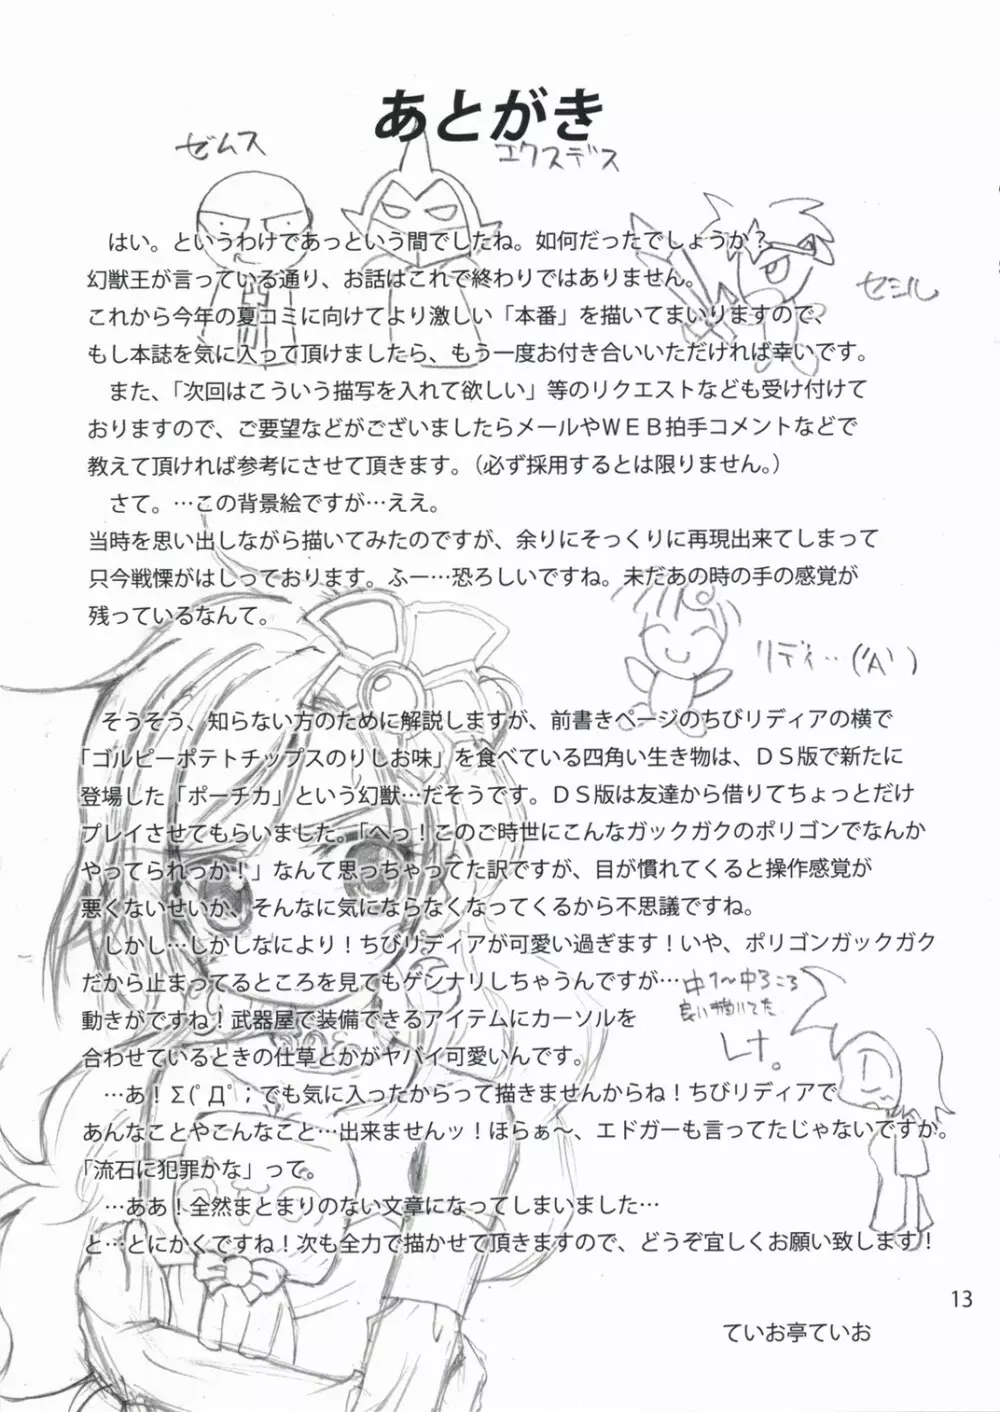 あとがき
ゼムス
エクスデス
はい。というわけであっという間でしたね。如何だったでしょうか？
幻獣王が言っている通り、お話はこれで終わりではありません。
セシル
これから今年の夏コミに向けてより激しい「本番」を描いてまいりますので、
もし本誌を気に入って頂けましたら、もう一度お付き合いいただければ幸いです。
また、「次回はこういう描写を入れて欲しい」等のリクエストなども受け付けて
おりますので、ご要望などがございましたらメールやＷＥＢ拍手コメントなどで
教えて頂ければ参考にさせて頂きます。（必ず採用するとは限りません。）
さて。…この背景絵ですが…ええ。
当時を思い出しながら描いてみたのですが、余りにそっくりに再現出来てしまって
只今戦慄がはしっております。ふー…恐ろしいですね。未だあの時の手の感覚が
残っているなんて。
リディ…('A`)
そうそう、知らない方のために解説しますが、前書きページのちびリディアの横で
「ゴルピーポテトチップスのりしお味」を食べている四角い生き物は、ＤＳ版で新たに
登場した「ポーチカ」という幻獣…だそうです。ＤＳ版は友達から借りてちょっとだけ
プレイさせてもらいました。「へっ！このご時世にこんなガックガクのポリゴンでなんか
やってられっか！」なんて思っちゃってた訳ですが、目が慣れてくると操作感覚が
悪くないせいか、そんなに気にならなくなってくるから不思議ですね。
しかし…しかしなにより！ちびリディアが可愛い過ぎます！いや、ポリゴンガックガク
だから止まってるところを見てもゲンナリしちゃうんですが…
中1〜中3ころ
良い描いてた
レナ。
動きがですね！武器屋で装備できるアイテムにカーソルを
合わせているときの仕草とかがヤバイ可愛いんです。
…あ！Σ(ﾟДﾟ；でも気に入ったからって描きませんからね！ちびリディアで
あんなことやこんなこと…出来ませんッ！ほらぁ〜、エドガーも言ってたじゃないですか。
「流石に犯罪かな」って。
…ああ！全然まとまりのない文章になってしまいました…
と…とにかくですね！次も全力で描かせて頂きますので、どうぞ宜しくお願い致します！
13
ていお亭ていお